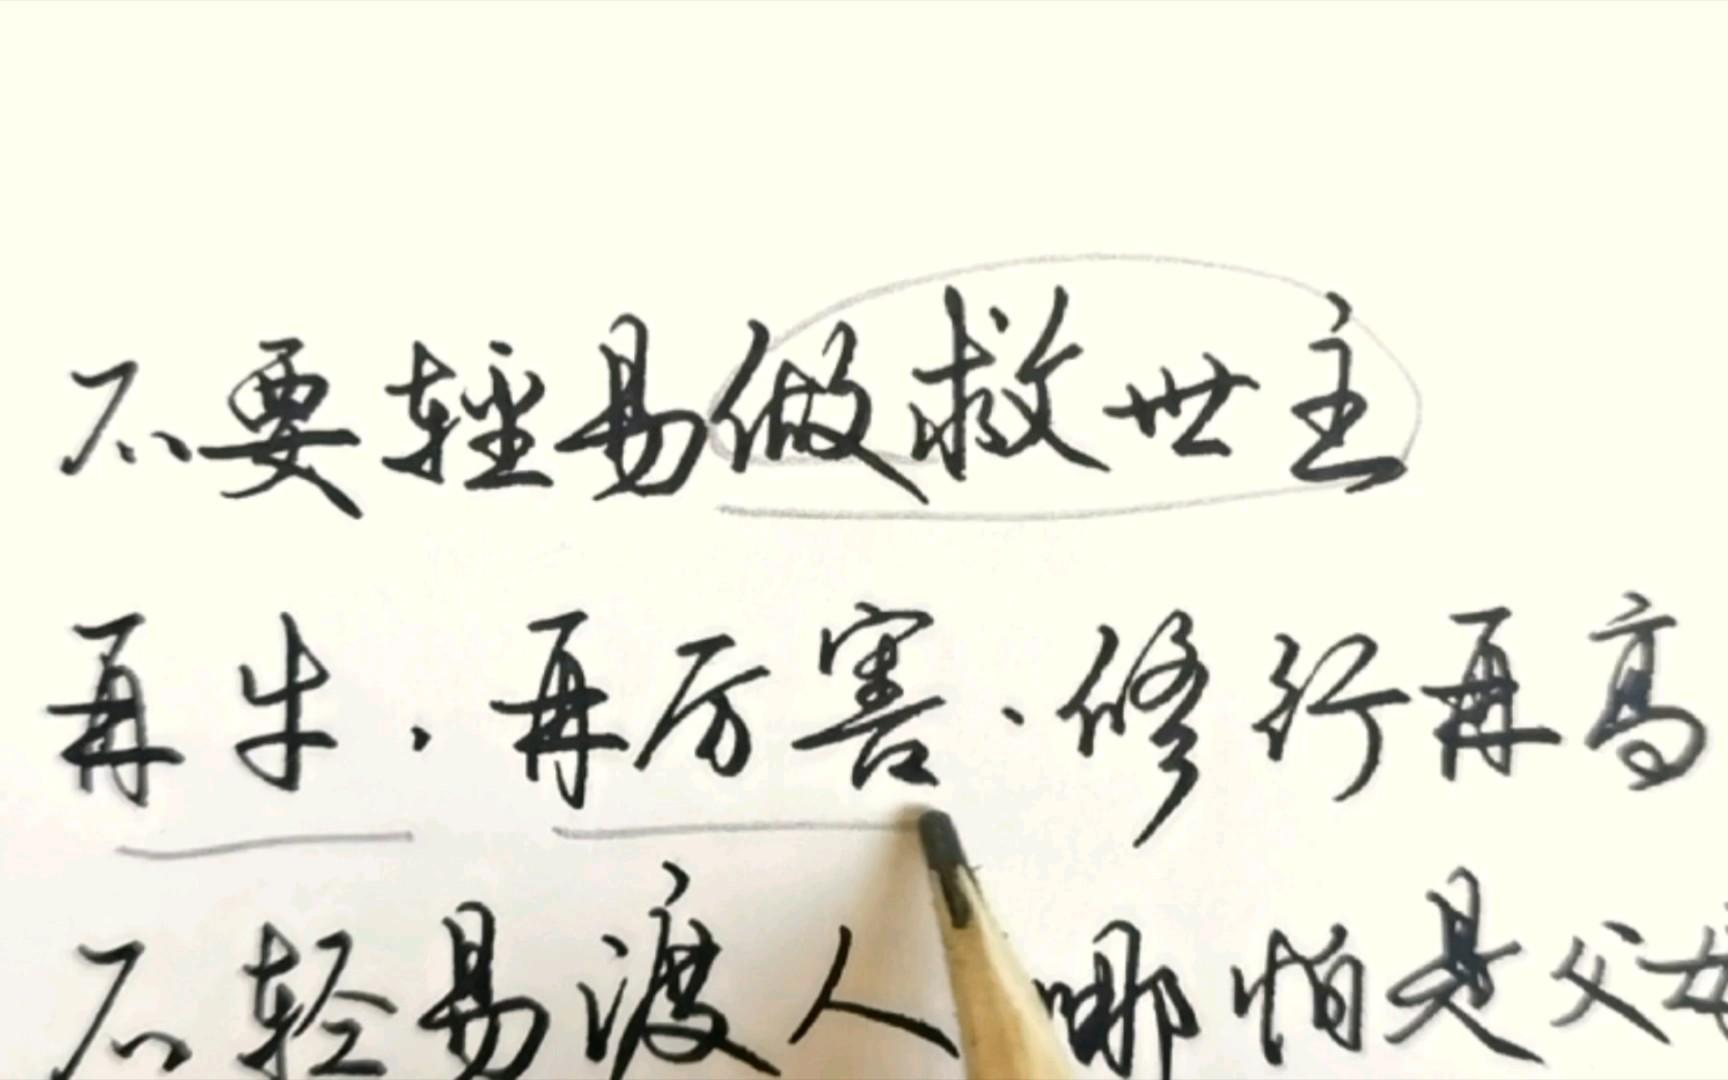 不要輕易做救世主
再牛，再厉害．修行再高
不轻易渡人哪怕是父母